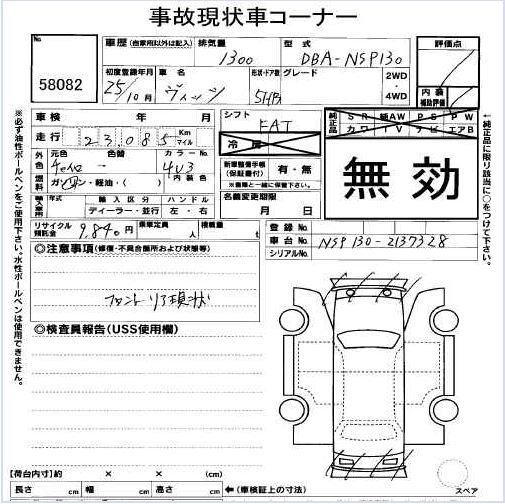 事故現状車コーナー
No.
58082
車歴 (自家用以外は記入) 排気量 1300 型式 DBA-NSP130
評価点
初度登録年月 25/10月 車名 ヴィッツ 形状・ドア数 5HB グレード 2WD・4WD
内装補助評価
車検 年 月
シフト FAT
走行 23,085 Km マイル
冷房
純正品 SR 純AW PS PW
カワ TV ナビ エアB
無効
外色 元色 色替 カラーNo. 4V3
内装色
燃料 ガソリン・軽油・( )
新車整備手帳(保証書付) 有・無
※書類と一緒に保管下さい。
輸入車用 年式 輸入区分 ハンドル
ディーラー・並行 左・右
名義変更期限
月 日
リサイクル預託金 9,840円 乗車定員 人 積載量 t
登録No.
車台No. NSP130-2137328
シリアルNo.
◎注意事項(修復・不具合箇所および状態等)
フロント リア現状
◎検査員報告(USS使用欄)
【荷台内寸】約 × × (cm)
長さ cm 幅 cm 高さ cm ←(車検証上の寸法)
スペア
※必ず油性ボールペンをご使用下さい。水性ボールペンは使用できません。
←純正品に限り該当に○をつけて下さい。